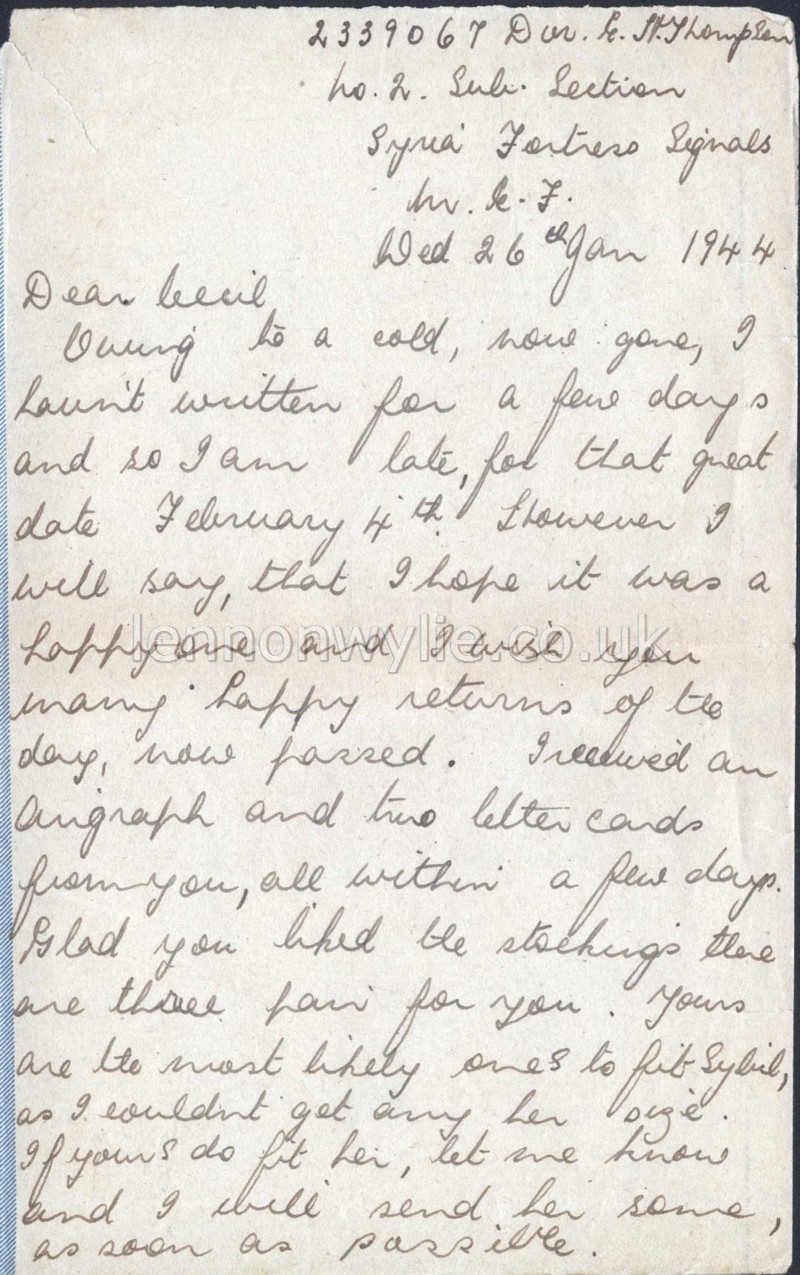 2339067 Dvr. E. H. Thompson
No. 2. Sub. Section
Syria Fortress Signals
M. E. F.
Wed 26th Jan 1944
Dear Cecil
Owing to a cold, now gone, I
havn't written for a few days
and so I am late, for that great
date February 4th. However I
will say, that I hope it was a
happy one and I wish you
lennonwylie.co.uk
many happy returns of the
day, now passed. I received an
Airgraph and two letter cards
from you, all within a few days.
Glad you liked the stockings there
are three pair for you. Yours
are the most likely ones to fit Sybil,
as I couldnt get any her size.
If yours do fit her, let me know
and I will send her some,
as soon as possible.